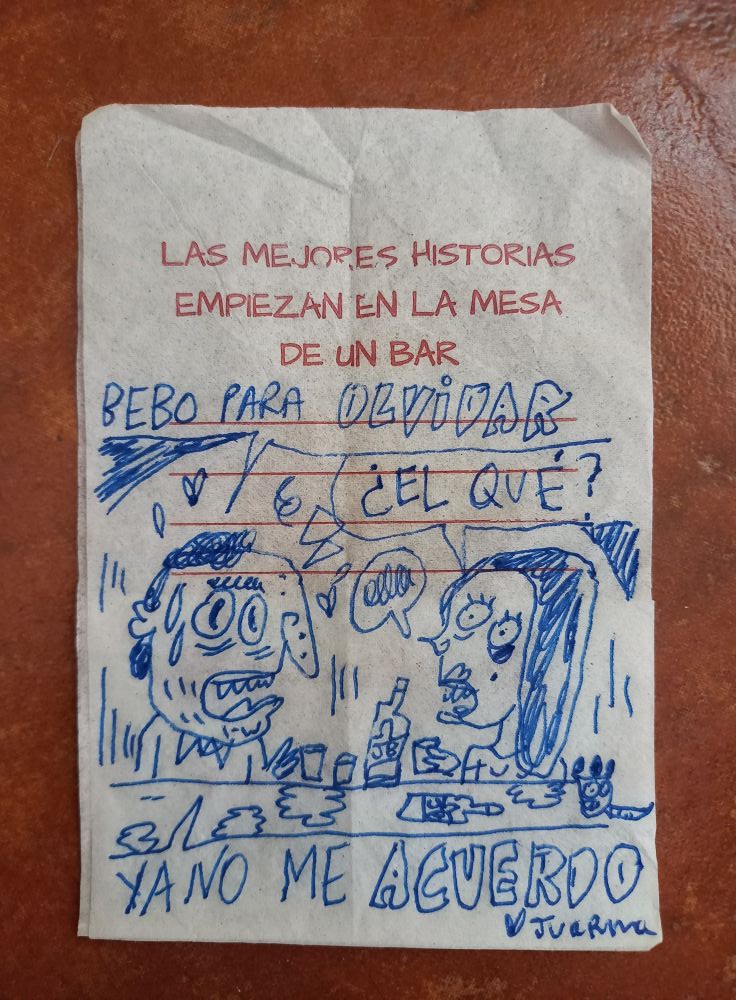 LAS MEJORES HISTORIAS
EMPIEZAN EN LA MESA
DE UN BAR
BEBO PARA OLVIDAR
¿EL QUÉ?
JB
YA NO ME ACUERDO
JUARMA